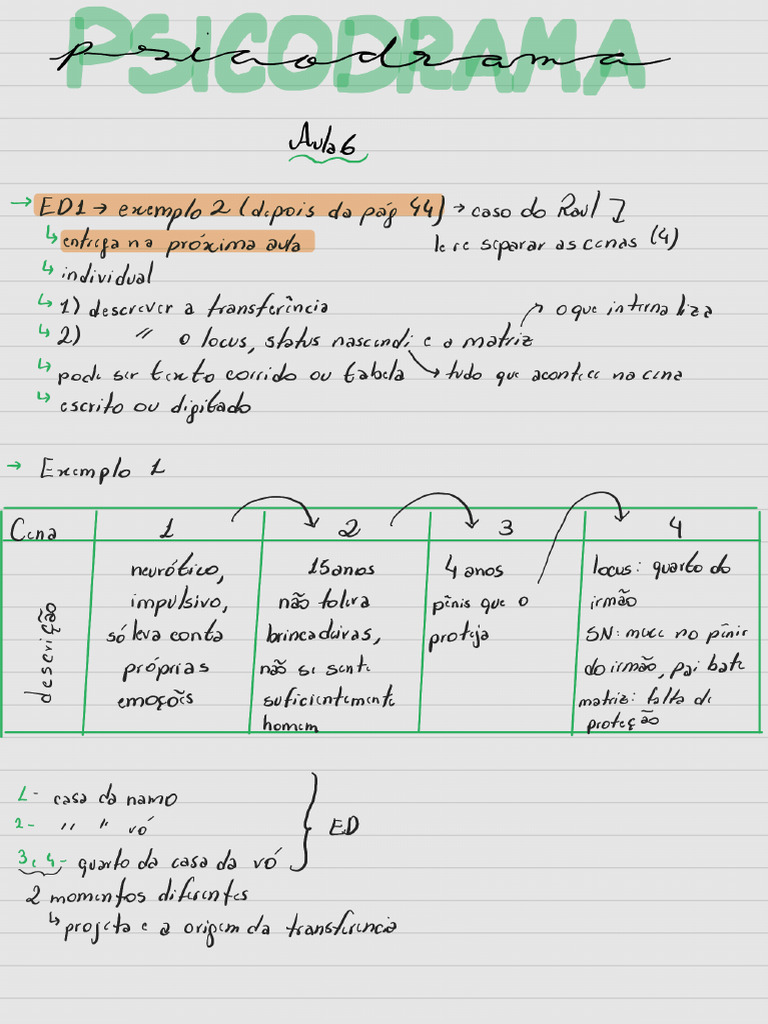 PSICODRAMA
psicodrama
Aula 6
→ ED1 → exemplo 2 (depois da pág 44) → caso do Raul
↳ entrega na próxima aula
ler e separar as cenas (4)
↳ individual
↳ 1) descrever a transferência
→ o que internaliza
↳ 2) " o locus, status nascendi e a matriz
↳ pode ser texto corrido ou tabela → tudo que acontece na cena
↳ escrito ou digitado
→ Exemplo 1
Cena 1 2 3 4
descrição
neurótico,
impulsivo,
só leva conta
próprias
emoções
15 anos
não tolera
brincadeiras,
não se sente
suficientemente
homem
4 anos
pênis que o
proteja
locus: quarto do
irmão
SN: mexe no pênis
do irmão, pai bate
matriz: falta de
proteção
1- casa da namo
2- " " vó
3 e 4- quarto da casa da vó
} ED
2 momentos diferentes
↳ projeta e a origem da transferencia